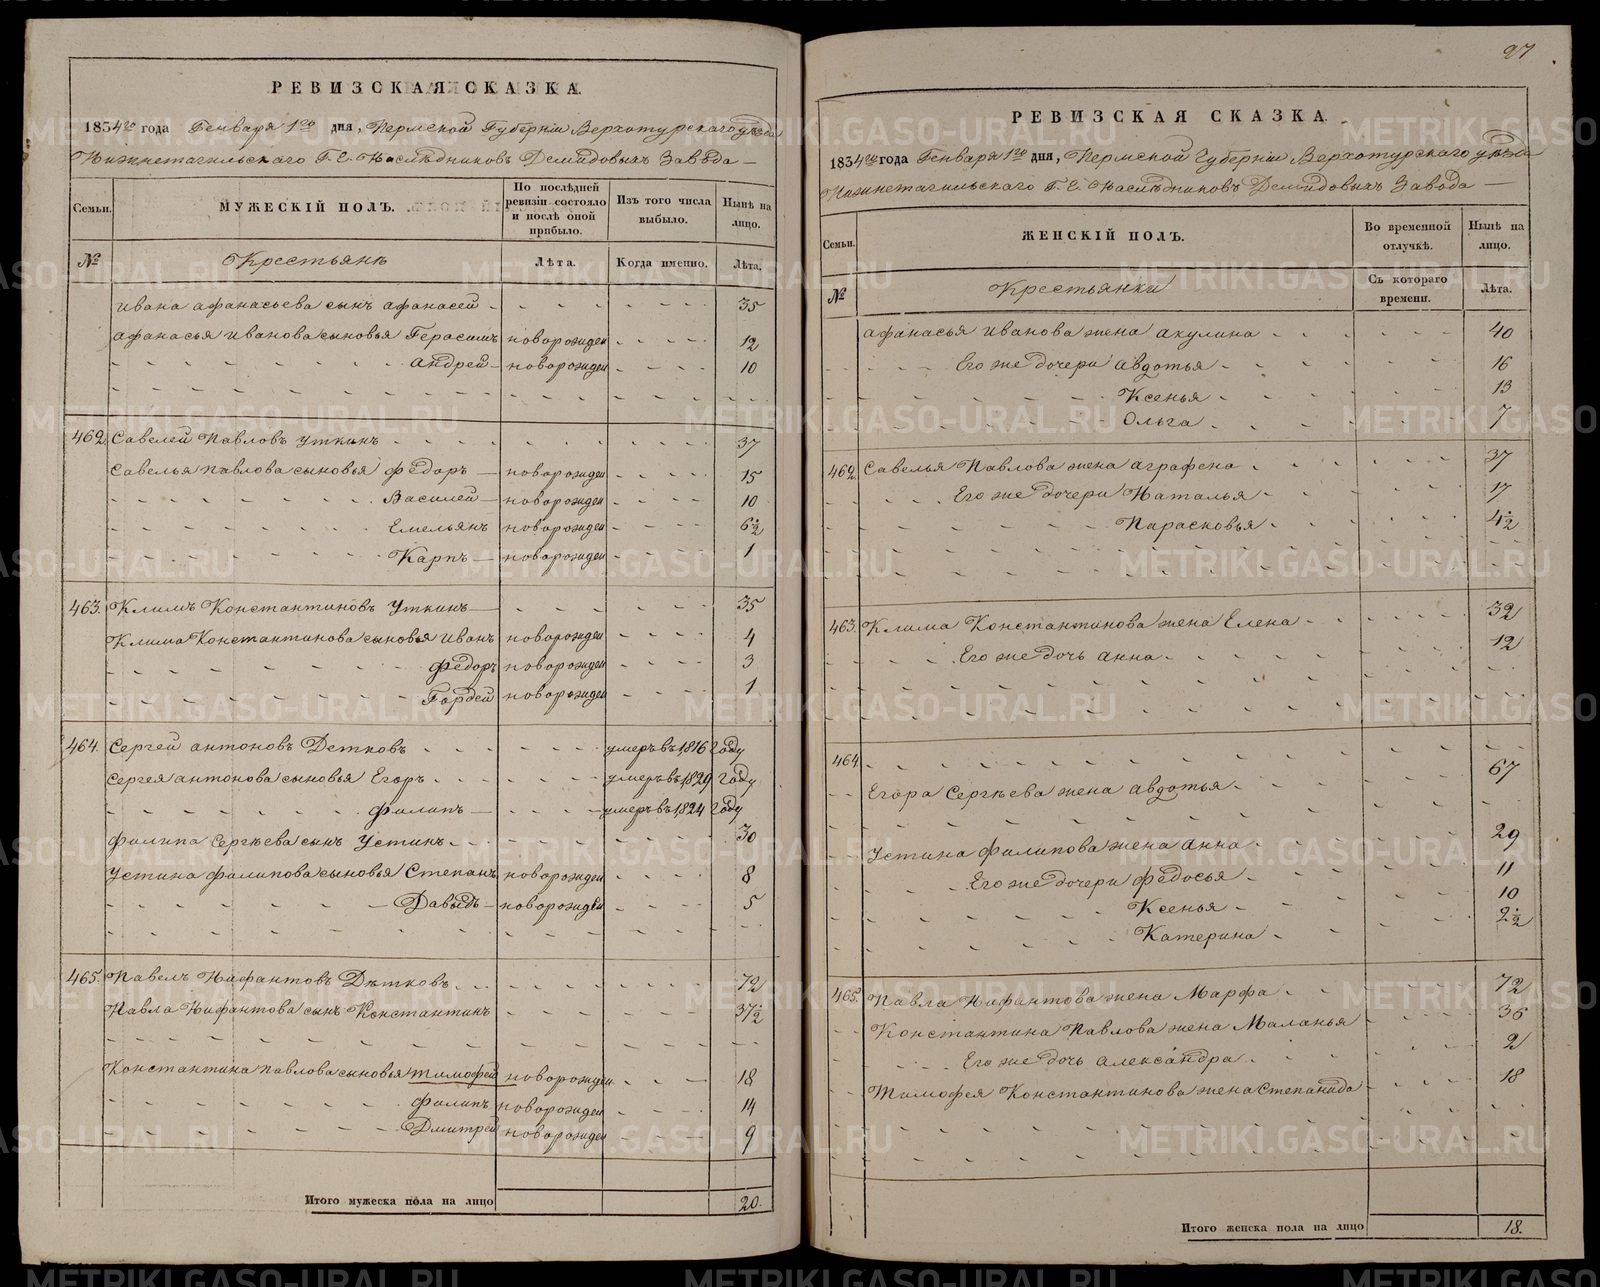 РЕВИЗСКАЯ СКАЗКА.
1834го года Генваря 1го дня, Пермской Губернiи Верхотурскаго уѣзда
Нижнетагильскаго Г. Е. Наслѣдниковъ Демидовыхъ Завода
Семьи.
МУЖЕСКIЙ ПОЛЪ.
По послѣдней ревизiи состояло и послѣ оной прибыло.
Изъ того числа выбыло.
Нынѣ на лицо.
№
Крестьянѣ
Лѣта.
Когда именно.
Лѣта.
Ивана Афанасьева сынъ Афанасей 35
Афанасья Иванова сыновья Герасимъ новорожден 12
Андрей новорожден 10
462. Савелей Павловъ Уткинъ 37
Савелья Павлова сыновья Федоръ новорожден 15
Василей новорожден 10
Емельянъ новорожден 6½
Карпъ новорожден 1
463. Климъ Константиновъ Уткинъ 35
Клима Константинова сыновья Иванъ новорожден 4
Федоръ новорожден 3
Гордей новорожден 1
464. Сергей Антоновъ Детковъ умеръ въ 1816 году
Сергея Антонова сыновья Егоръ умеръ въ 1829 году
Филипъ умеръ въ 1824 году
Филипа Сергѣева сынъ Устинъ 30
Устина Филипова сыновья Степанъ новорожден 8
Давыдъ новорожден 5
465. Павелъ Нифантовъ Дѣтковъ 72
Павла Нифантова сынъ Константинъ 37½
Константина Павлова сыновья Тимофей новорожден 18
Филипъ новорожден 14
Дмитрей новорожден 9
Итого мужеска пола на лицо 20.
27
РЕВИЗСКАЯ СКАЗКА.
1834го года Генваря 1го дня, Пермской Губернiи Верхотурскаго уѣзда
Нижнетагильскаго Г. Е. Наслѣдниковъ Демидовыхъ Завода
Семьи.
ЖЕНСКIЙ ПОЛЪ.
Во временной отлучкѣ.
Нынѣ на лицо.
№
Крестьянки
Съ котораго времени.
Лѣта.
Афанасья Иванова жена Акулина 40
Его же дочери Авдотья 16
Ксенья 13
Ольга 7
462. Савелья Павлова жена Аграфена 37
Его же дочери Наталья 17
Парасковья 4½
463. Клима Константинова жена Елена 32
Его же дочь Анна 12
464
Егора Сергѣева жена Авдотья 67
Устина Филипова жена Анна 29
Его же дочери Федосья 11
Ксенья 10
Катерина 2½
465. Павла Нифантова жена Марфа 72
Константина Павлова жена Маланья 36
Его же дочь Александра 2
Тимофея Константинова жена Степанида 18
Итого женска пола на лицо 18.
METRIKI.GASO-URAL.RU